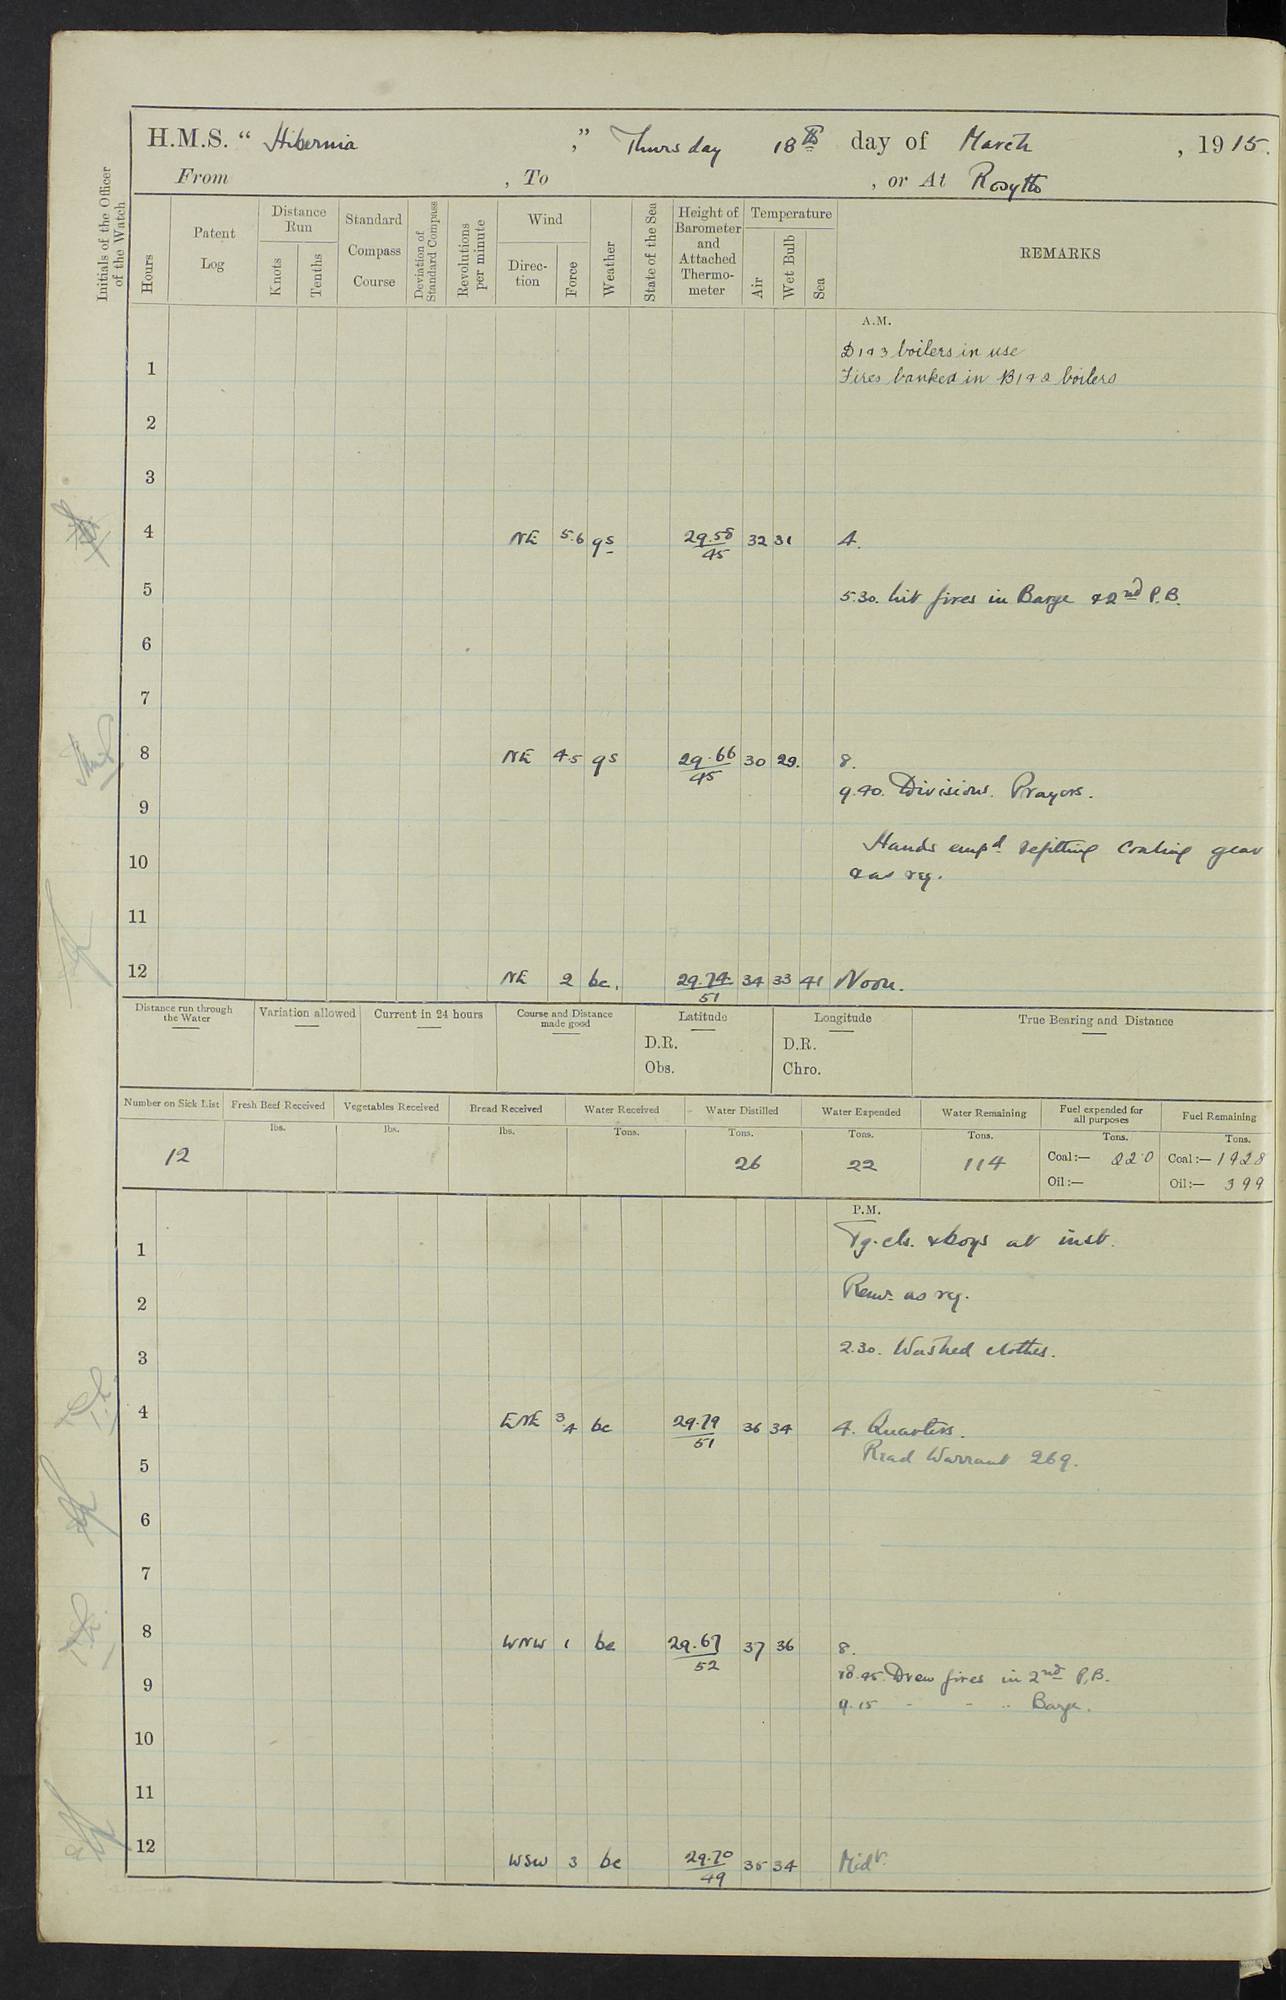 H.M.S. “ Hibernia ,” Thursday 18th day of March , 1915.
From , To , or At Rosyth
Initials of the Officer of the Watch
Hours
Patent Log
Distance Run
Knots
Tenths
Standard Compass Course
Deviation of Standard Compass
Revolutions per minute
Wind
Direction
Force
Weather
State of the Sea
Height of Barometer and Attached Thermometer
Temperature
Air
Wet Bulb
Sea
REMARKS
A.M.
D1 & 3 boilers in use
1
Fires banked in B1 & 2 boilers
2
3
4 NE 5.6 qs 29.58 45 32 31 4.
5 5.30. lit fires in Barge & 2nd P.B.
6
7
8 NE 4.5 qs 29.66 45 30 29. 8.
9 9.40. Divisions. Prayers.
10 Hands empd. refitting Coaling gear
& as req.
11
12 NE 2 bc. 29.74 51 34 33 41 Noon.
Distance run through the Water
Variation allowed
Current in 24 hours
Course and Distance made good
Latitude
D.R.
Obs.
Longitude
D.R.
Chro.
True Bearing and Distance
Number on Sick List
Fresh Beef Received
Vegetables Received
Bread Received
Water Received
Water Distilled
Water Expended
Water Remaining
Fuel expended for all purposes
Fuel Remaining
lbs. lbs. lbs. Tons. Tons. Tons. Tons. Tons. Tons.
12 26 22 114 Coal:— 22.0 Coal:— 1928
Oil:— Oil:— 399
P.M.
1 Tg. cls. & boys at inst.
2 Remr. as req.
3 2.30. Washed clothes.
4 ENE 3.4 bc 29.79 51 36 34 4. Quarters.
5 Read Warrant 269.
6
7
8 WNW 1 bc 29.67 52 37 36 8.
9 8.45. Drew fires in 2nd P.B.
9.15 - - .. Barge.
10
11
12 WSW 3 bc 29.70 49 35 34 Midt.